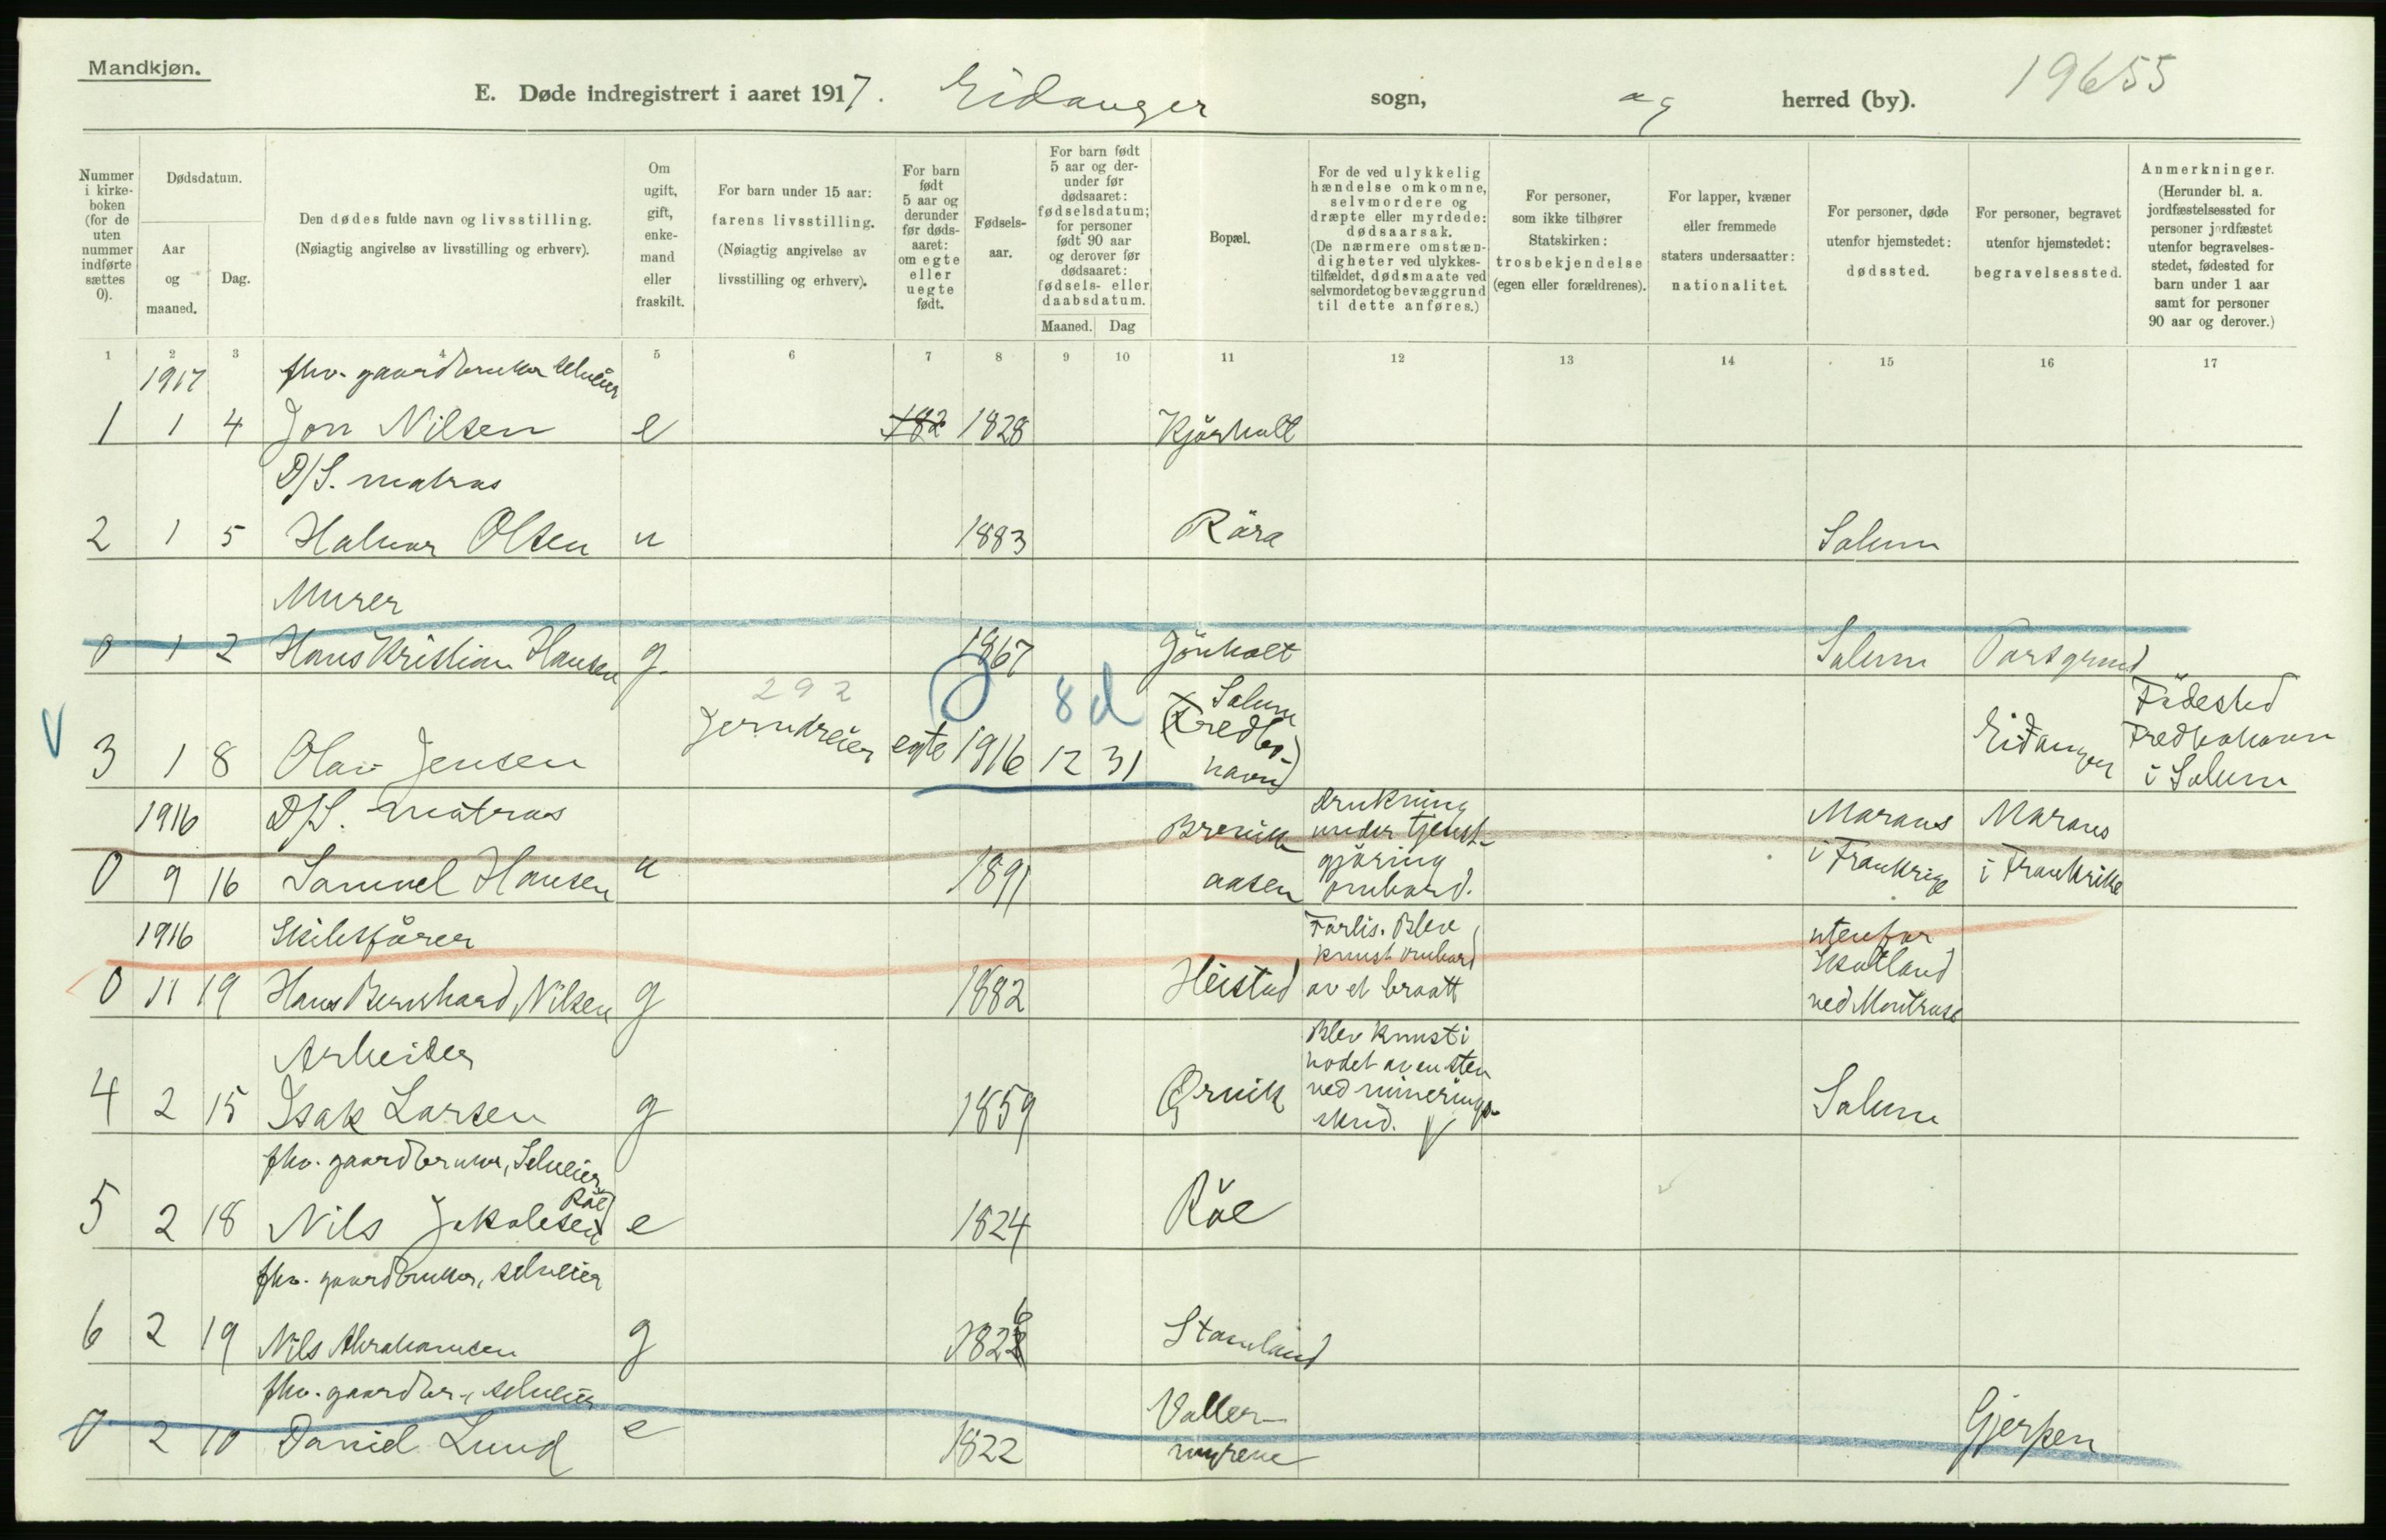 Mandkjøn.
E. Døde indregistrert i aaret 1917. Eidanger sogn, og herred (by). 19655
Nummer i kirke-boken (for de uten nummer indførte sættes 0).
Dødsdatum.
Aar og maaned.
Dag.
Den dødes fulde navn og livsstilling.
(Nøiagtig angivelse av livsstilling og erhverv).
Om ugift, gift, enke-mand eller fraskilt.
For barn under 15 aar: farens livsstilling.
(Nøiagtig angivelse av livsstilling og erhverv).
For barn født 5 aar og derunder før døds-aaret: om egte eller uegte født.
Fødsels-aar.
For barn født 5 aar og der-under før dødsaaret: fødselsdatum; for personer født 90 aar og derover før dødsaaret: fødsels- eller daabsdatum.
Maaned. Dag
Bopæl.
For de ved ulykkelig hændelse omkomne, selvmordere og dræpte eller myrdede: dødsaarsak.
(De nærmere omstæn-digheter ved ulykkes-tilfældet, dødsmaate ved selvmordet og bevæggrund til dette anføres.)
For personer, som ikke tilhører Statskirken: trosbekjendelse (egen eller forældrenes).
For lapper, kvæner eller fremmede staters undersaatter: nationalitet.
For personer, døde utenfor hjemstedet: dødssted.
For personer, begravet utenfor hjemstedet: begravelsessted.
Anmerkninger.
(Herunder bl. a. jordfæstelsessted for personer jordfæstet utenfor begravelses-stedet, fødested for barn under 1 aar samt for personer 90 aar og derover.)
1 2 3 4 5 6 7 8 9 10 11 12 13 14 15 16 17
1917 fhv. gaardbruker selveier
1 1 4 Jon Nilsen e 182 1828 Kjørholt
D/S. matros
2 1 5 Halvor Olsen u 1883 Røra Solum
Murer
0 1 2 Hans Kristian Hansen g. 1867 Gønholt Solum Porsgrund
292 8 d
V 3 1 8 Olav Jensen Jerndreier egte 1916 12 31 Solum (Fredbo-havn) Eidanger Fødested Fredbohavn i Solum
1916 D/S. matros
0 9 16 Samuel Hansen u 1891 Brevik aasen drukning under tjenst-gjøring ombord. Marans i Frankrige Marans i Frankrike
1916 Skibsfører
0 11 19 Hans Bernhard Nilsen g 1882 Heistad Forlis. Blev knust ombord av et braatt utenfor Skotland ved Montrose
Arbeider
4 2 15 Isak Larsen g 1859 Ørvik Blev knust i hodet av en sten ved minerings-skud. V Solum
fhv. gaardbruker, Selveier
5 2 18 Nils Jakobsen Røe e 1824 Röe
fhv. gaardbruker, selveier
6 2 19 Nils Abrahamsen g 1826 Stamland
fhv. gaardbr., selveier
0 2 10 Daniel Lund e 1822 Valler-myrene Gjerpen